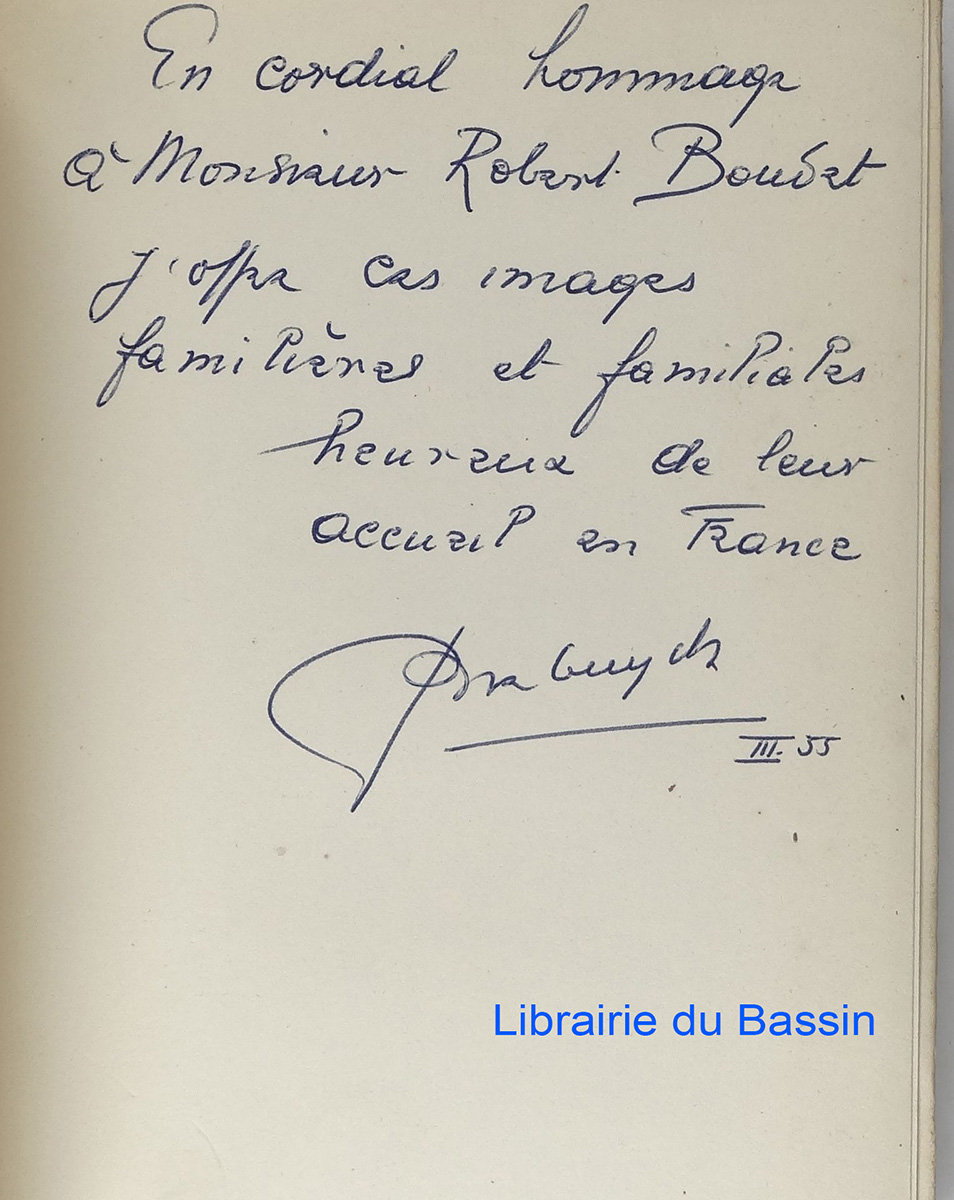 En cordial hommage
à Monsieur Robert Boudet
j'offre ces images
familières et familiales
heureux de leur
accueil en France
III. 55
Librairie du Bassin